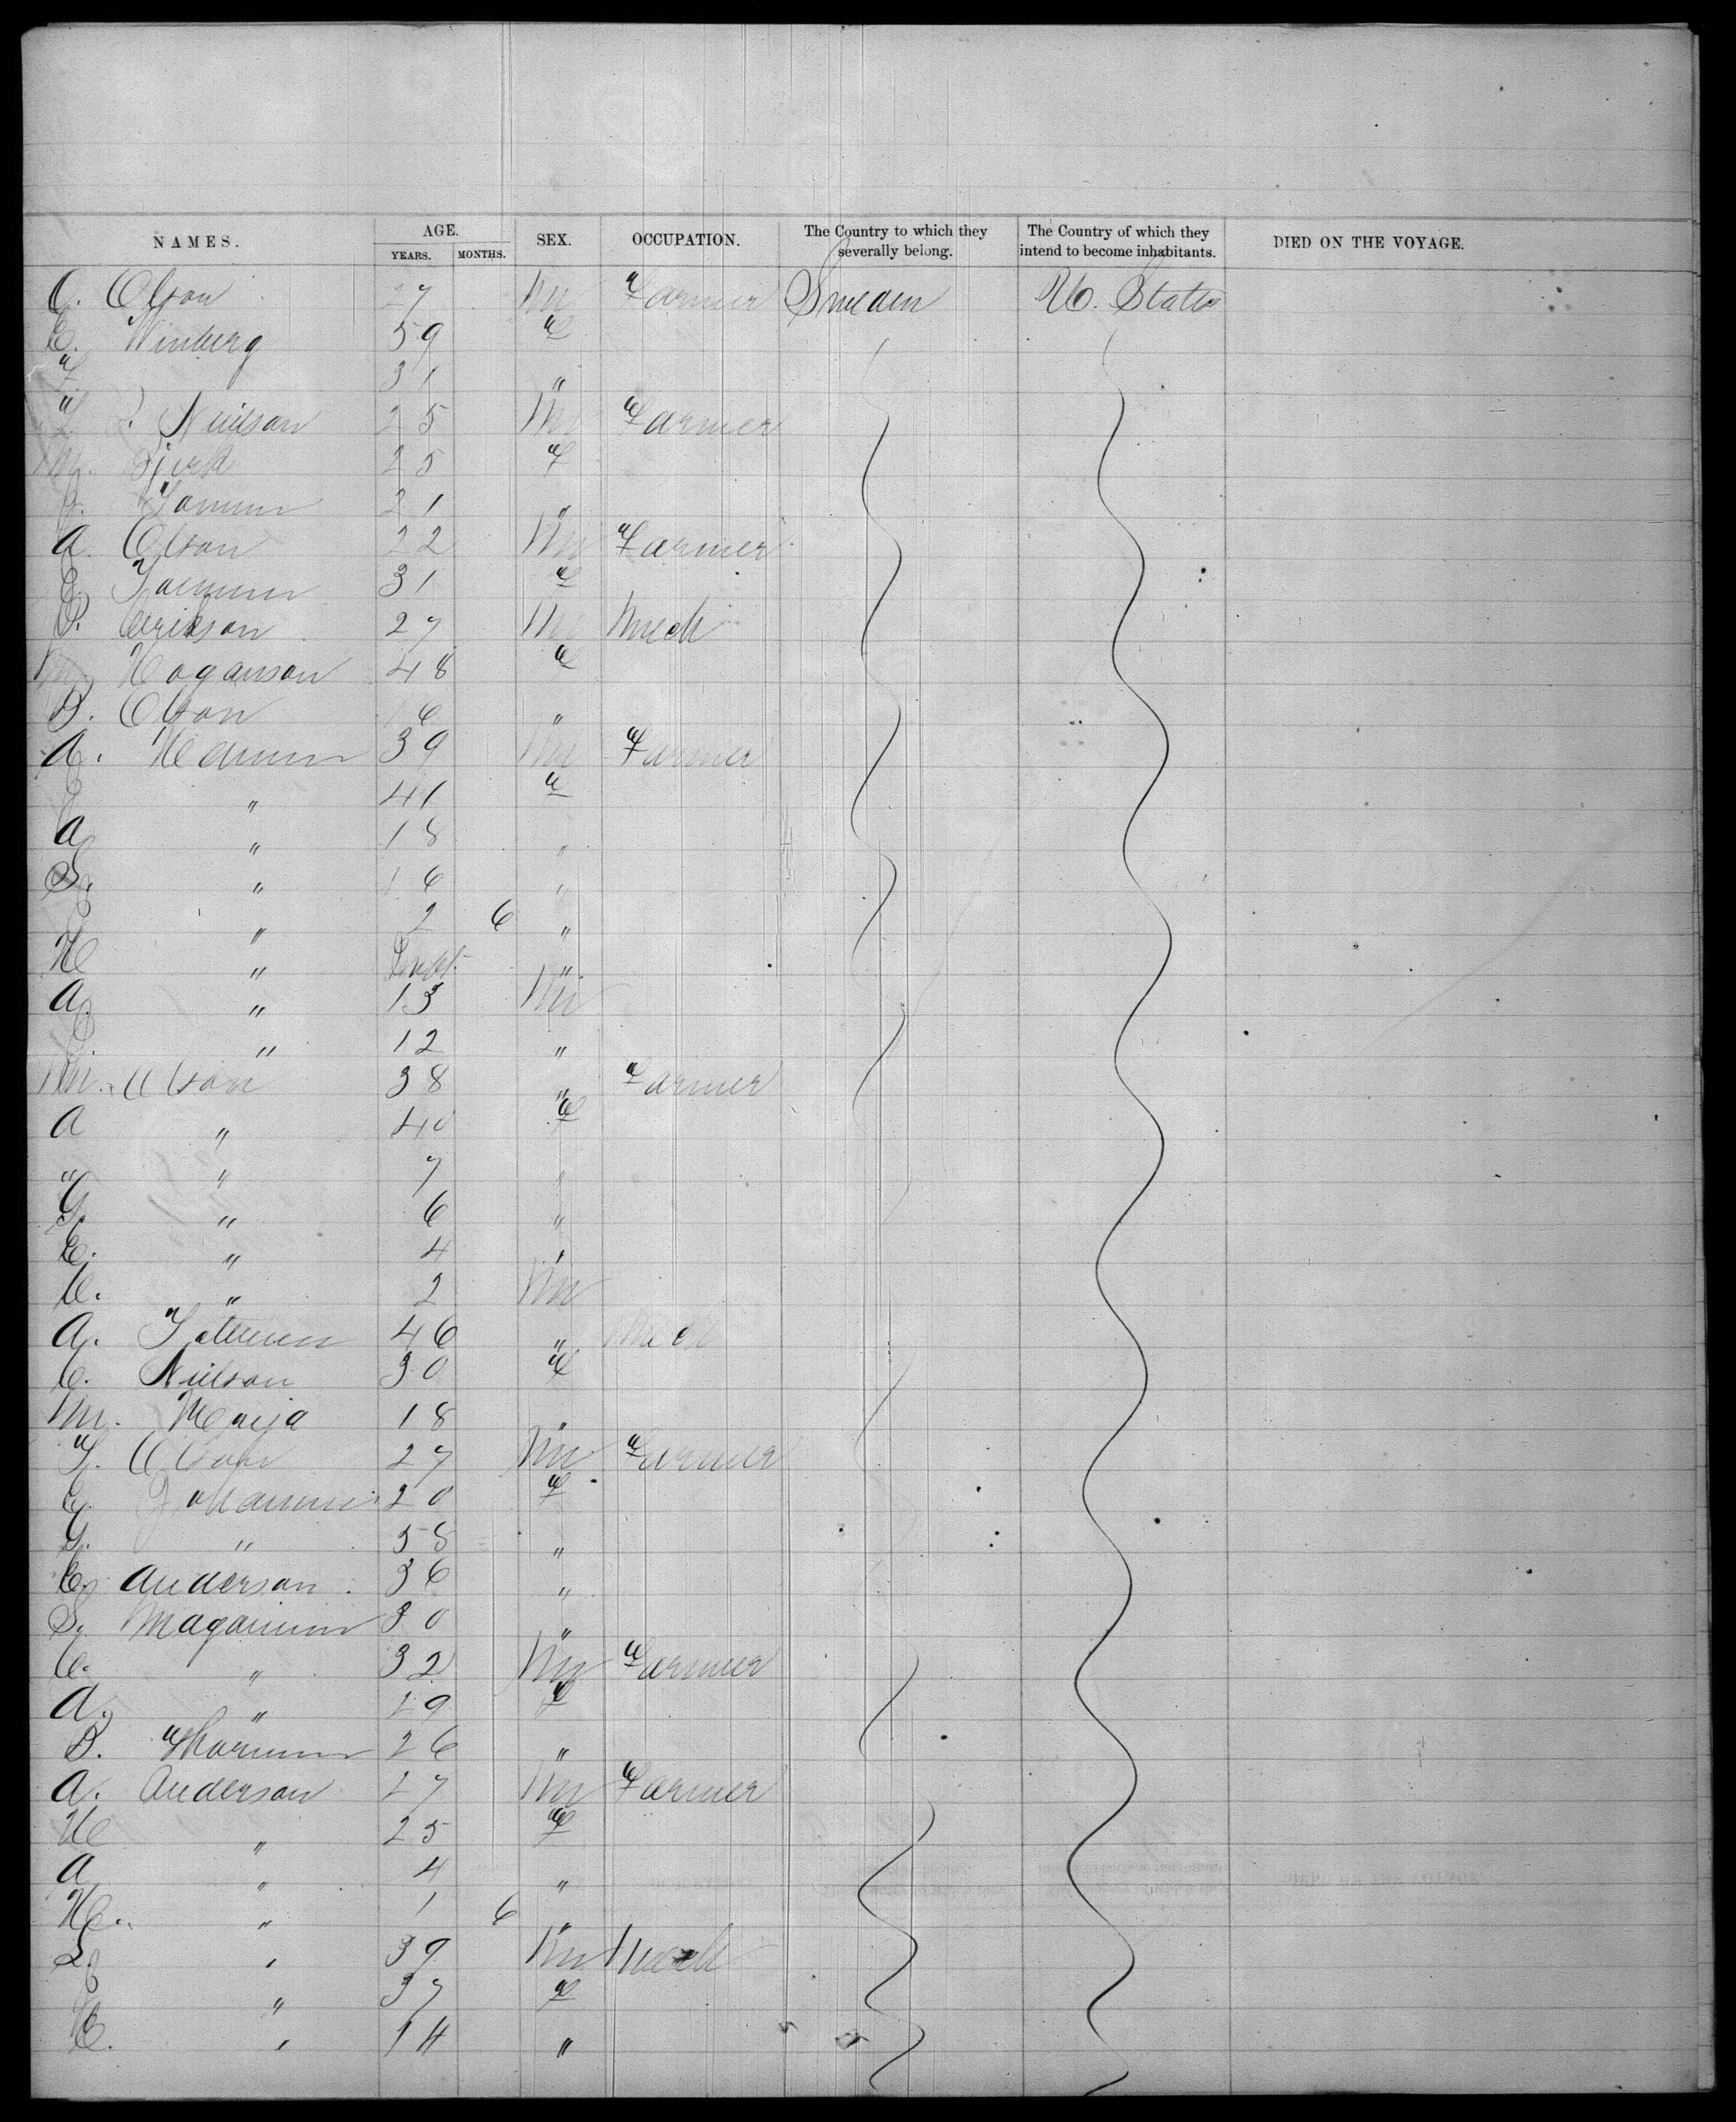 NAMES. AGE. SEX. OCCUPATION. The Country to which they severally belong. The Country of which they intend to become inhabitants. DIED ON THE VOYAGE.
YEARS. MONTHS.
C. Olson 27 M Farmer Sweden U. States
C. Winberg 59 F
F. 31 "
Neilson 25 M Farmer
M. Bjork 25 F
21 "
A. Olson 22 M Farmer
31 F
P. Erikson 27 M Mech
M. Hoganson 48 F
B. Olson 16 "
A. 39 M Farmer
" 41 F
A " 18 "
S. " 16 "
" 2 6 "
H " Inft. "
A. " 13 M
" 12 "
M. Olson 38 " Farmer
A " 40 F
" " 7 "
G. " 6 "
E. " 4 "
C. " 2 M
A. 46 " Mech
C. Neilson 30 F
M. Marija 18 "
T. Olson 27 M Farmer
20 F
G. " 58 "
C. Anderson 36 "
S. 30 "
C. " 32 M Farmer
A. " 29 F
B. 26 "
A. Anderson 27 M Farmer
H " 25 F
A " 4 "
H. " 1 6 "
L. " 39 M Mech
" 37 F
H. " 14 "